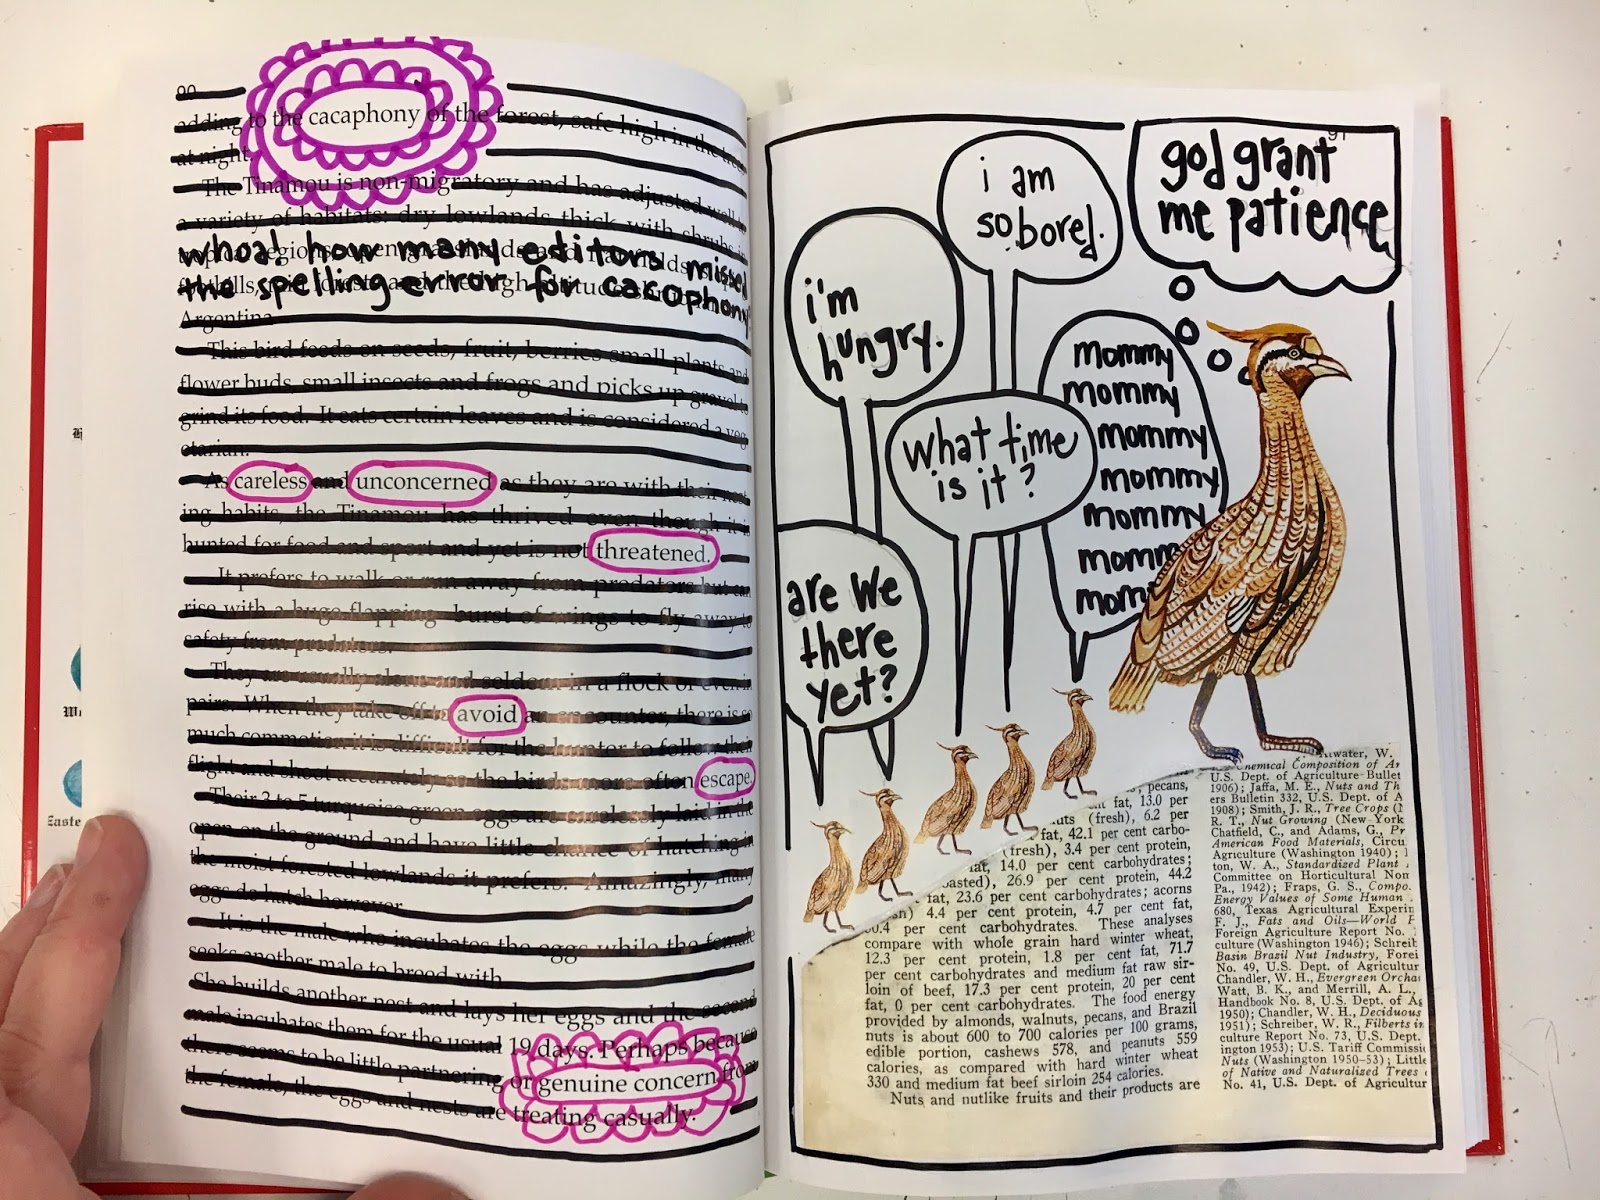 90
adding to the cacaphony of the forest, safe high in the trees
at night.
The Tinamou is non-migratory and has adjusted well to
a variety of habitats: dry lowlands thick with shrubs
whoa! how many editors missed
the spelling error for cacophony
Argentina
This bird feeds on seeds, fruit, berries small plants and
flower buds, small insects and frogs and picks up gravel to
grind its food. It eats certain leaves and is considered a veg
etarian.
As careless and unconcerned as they are with their nest
ing habits, the Tinamou has thrived even though it is
hunted for food and sport and yet is not threatened.
It prefers to walk or run away from predators but can
rise with a huge flapping burst of wings to fly away to
safety from predators.
They are usually alone and seldom in a flock or even in
pairs. When they take off to avoid an encounter, there is so
much commotion it is difficult for the hunter to follow their
flight and shoot accurately so the birds more often escape.
Their 3 to 5 turquoise green eggs are carelessly laid in the
open on the ground and have little chance of hatching in
the moist forested lowlands it prefers. Amazingly, many
eggs do hatch however
It is the male who incubates the eggs while the female
seeks another male to breed with
She builds another nest and lays her eggs and the second
male incubates them for the usual 19 days. Perhaps because
there seems to be little partnering or genuine concern from
the female, the eggs and nests are treating casually.
91
god grant
me patience
i am
so bored.
i'm
hungry.
mommy
mommy
mommy
mommy
mommy
momm
mom
what time
is it?
are we
there
yet?
pecans,
fat, 13.0 per
(fresh), 6.2 per
fat, 42.1 per cent carbo-
(fresh), 3.4 per cent protein,
14.0 per cent carbohydrates;
26.9 per cent protein, 44.2
fat, 23.6 per cent carbohydrates; acorns
4.4 per cent protein, 4.7 per cent fat,
per cent carbohydrates. These analyses
compare with whole grain hard winter wheat,
12.3 per cent protein, 1.8 per cent fat, 71.7
per cent carbohydrates and medium fat raw sir-
loin of beef, 17.3 per cent protein, 20 per cent
fat, 0 per cent carbohydrates. The food energy
provided by almonds, walnuts, pecans, and Brazil
nuts is about 600 to 700 calories per 100 grams,
edible portion, cashews 578, and peanuts 559
calories, as compared with hard winter wheat
330 and medium fat beef sirloin 254 calories.
Nuts and nutlike fruits and their products are
twater, W.
Chemical Composition of Am
U.S. Dept. of Agriculture Bullet
1906); Jaffa, M. E., Nuts and Th
ers Bulletin 332, U.S. Dept. of A
1908); Smith, J. R., Tree Crops (
R. T., Nut Growing (New York
Chatfield, C., and Adams, G., Pr
American Food Materials, Circu
Agriculture (Washington 1940);
ton, W. A., Standardized Plant
Committee on Horticultural Nom
Pa., 1942); Fraps, G. S., Compo.
Energy Values of Some Human
680, Texas Agricultural Experin
F. J., Fats and Oils—World
Foreign Agriculture Report No.
culture (Washington 1946); Schreib
Basin Brazil Nut Industry, Forei
No. 49, U.S. Dept. of Agricultur
Chandler, W. H., Evergreen Orchar
Watt, B. K., and Merrill, A. L.,
Handbook No. 8, U.S. Dept. of Ag
1950); Chandler, W. H., Deciduous
1951); Schreiber, W. R., Filberts in
culture Report No. 73, U.S. Dept.
ington 1953); U.S. Tariff Commissio
Nuts (Washington 1950–53); Little
of Native and Naturalized Trees
No. 41, U.S. Dept. of Agricultur